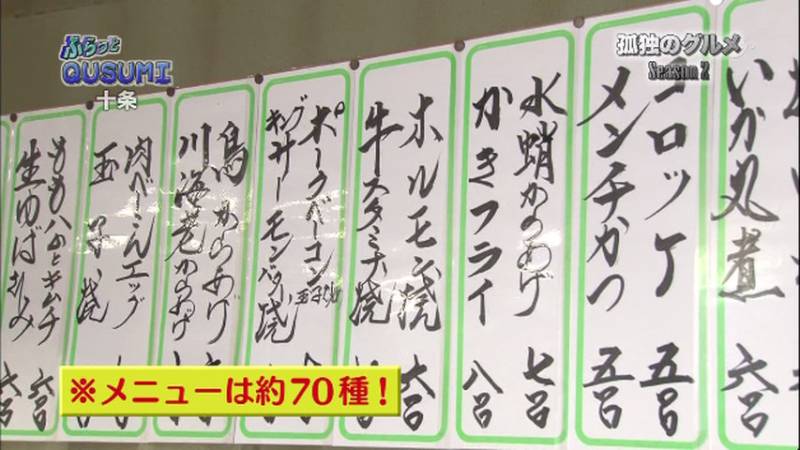 ぶらっと
QUSUMI
十条
孤独のグルメ
Season2
いか丸煮 六
コロッケ 五
メンチかつ 五
水蛸からあげ 七
かきフライ 八
ホルモン焼 六
牛スタミナ焼
ポークベーコン
キングサーモンバタ焼
鳥からあげ
川海老からあげ
エッグ
玉子焼
ももハムとキムチ 六
生ゆば刺み 六
※メニューは約70種！